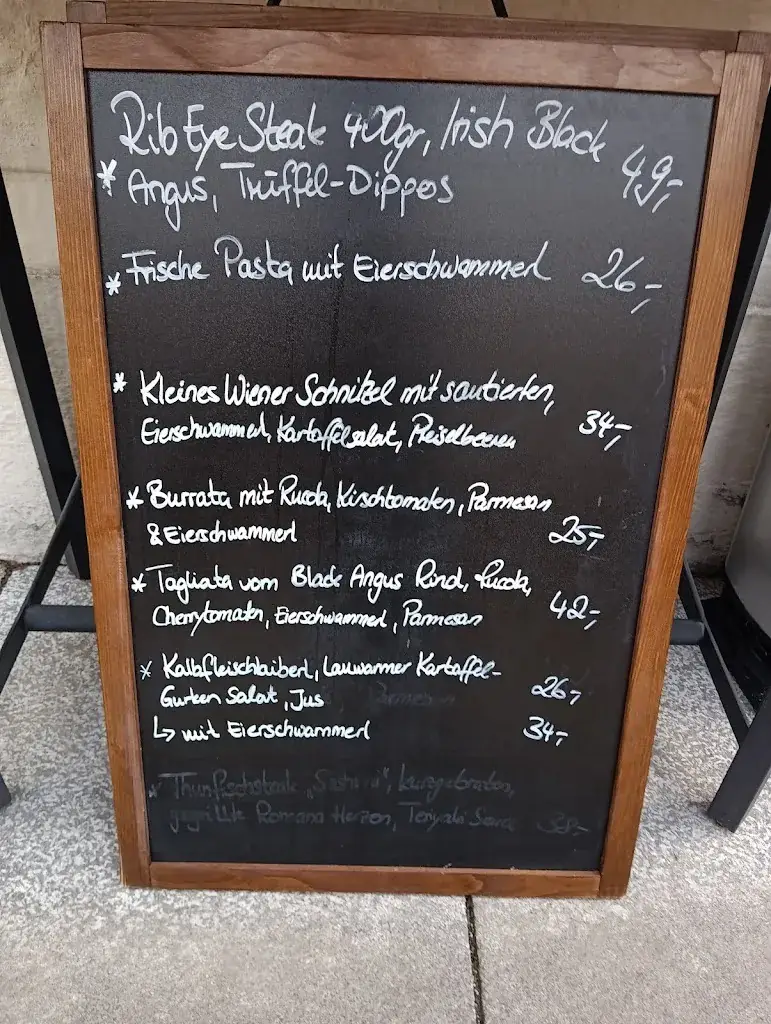 Rib Eye Steak 400gr, Irish Black
* Angus, Trüffel-Dippos 49,-
* Frische Pasta mit Eierschwammerl 26,-
* Kleines Wiener Schnitzel mit sautierten,
Eierschwammerl, Kartoffelsalat, Preiselbeeren 34,-
* Burrata mit Rucola, Kirschtomaten, Parmesan
& Eierschwammerl 25,-
* Tagliata vom Black Angus Rind, Rucola,
Cherrytomaten, Eierschwammerl, Parmesan 42,-
* Kalbfleischlaiberl, Lauwarmer Kartoffel-
Gurken Salat, Jus 26,-
↳ mit Eierschwammerl 34,-
* Thunfischsteak „Sashimi", kurzgebraten,
gegrillte Romana Herzen, Teriyaki Sauce 38,-